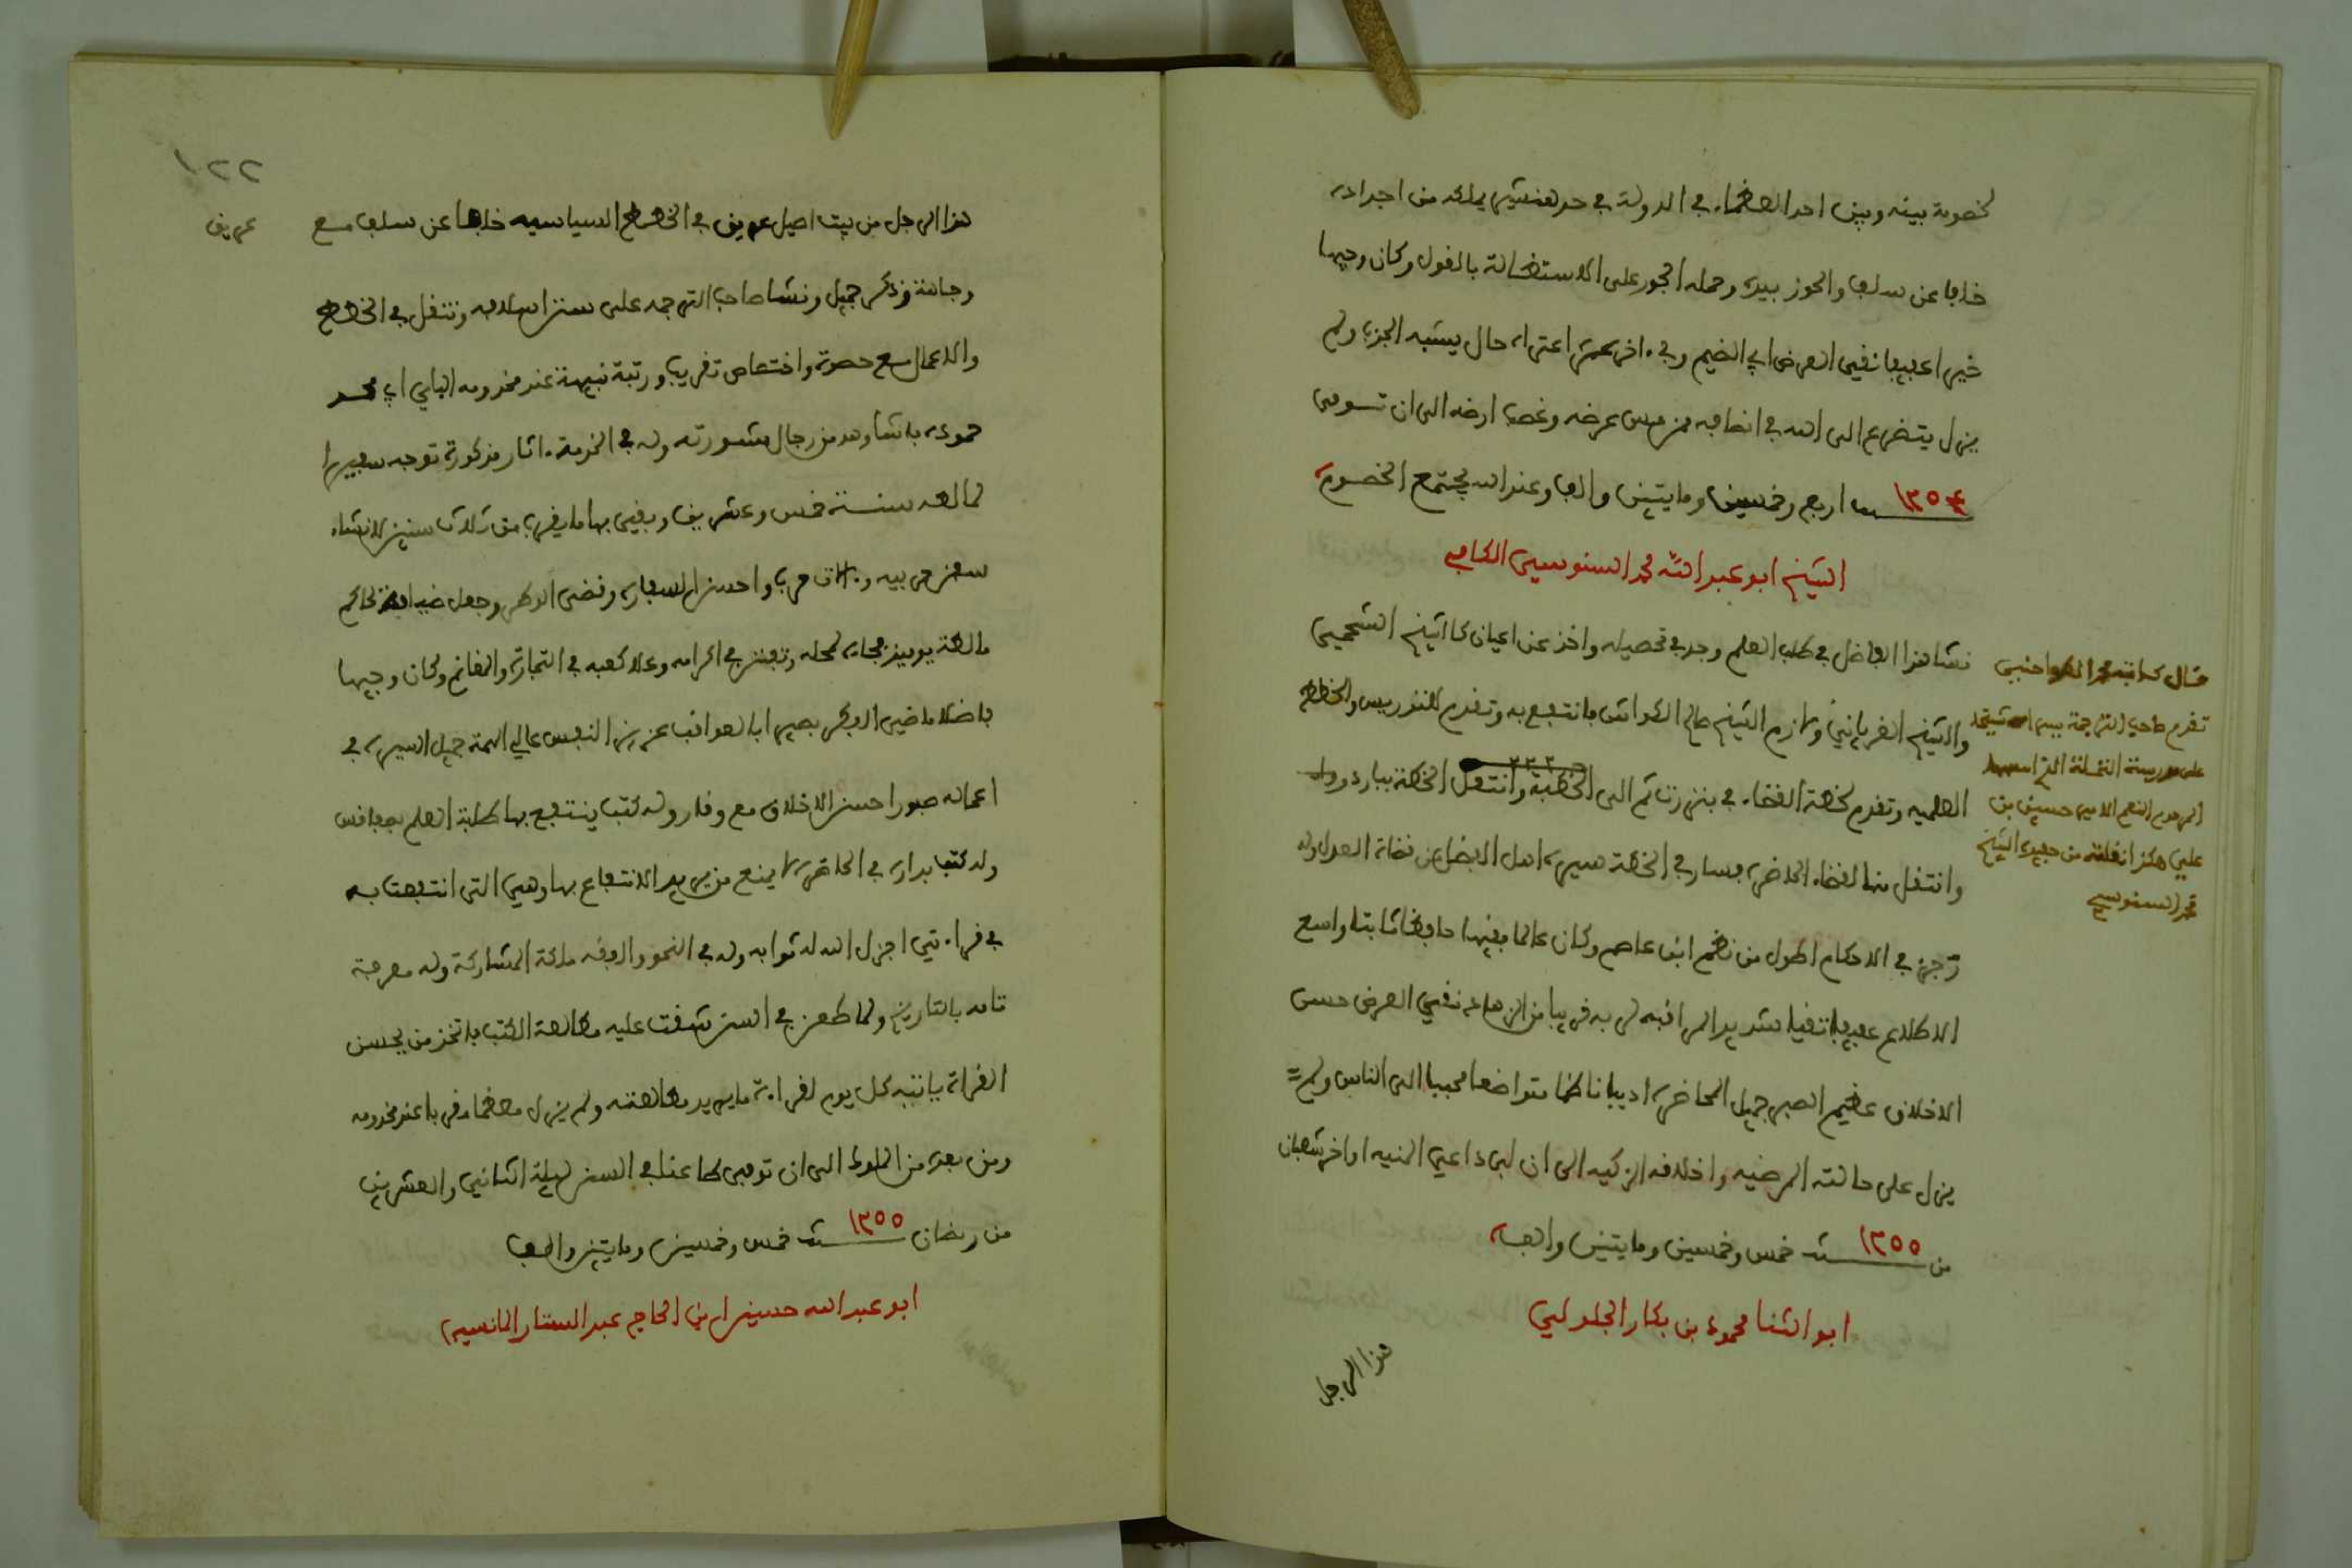 لخصومة بينه وبين احد العظماء في الدولة في حد هنشير يملكه من اجداده
خلفا عن سلف والحوز بيده وحمله الجور على الاستطالة بالقول وكان وجيها
خيرا عفيفا نقي العرض ابي الضيم وفي ءاخر عمره اعتراه حال يشبه الجذب ولم
يزل يتضرع الى الله في انصافه ممن مس عرضه وغصب ارضه الى ان توفى
١٢٥٤ سنة اربع وخمسين ومايتين والف وعند الله تجتمع الخصوم
الشيخ ابو عبد الله محمد السنوسي الكافي
نشا هذا الفاضل في طلب العلم وجد في تحصيله واخذ عن اعيان كالشيخ الشحمي
والشيخ الغرياني ولازم الشيخ صالح الكواش فانتفع به وتقدم للتدريس والخطط
العلميه وتقدم لخطة القضاء في بنزرت ثم الى الخطبة وانتقل لخطة بباردو
وانتقل منها لقضاء الحاضرة فسار في الخطة سيرة اهل الفضل من قضاة العدل وله
رجز في الاحكام اطول من نظم ابن عاصم وكان عالما فقيها حافظا ثابتا واسع
الاطلاع عفيفا تقيا شديد المراقبة لربه قريبا من الزهاد نقي العرض حسن
الاخلاق عظيم الصبر جميل المحاضرة اديبا ناظما متواضعا محببا الى الناس ولم
يزل على حالته المرضيه واخلاقه الزكيه الى ان لبى داعي المنيه اواخر شعبان
من ١٢٥٥ سنة خمس وخمسين ومايتين والف
ابو الثنا محمود بن بكار الجلولي
هذا الرجل
قال كاتبه محمد
تقدم صاحب الترجمة
على مدرسة النخلة التي اسسها
المرحوم المنعم الامير حسين بن
علي هكذا نقلته من حفيده الشيخ
محمد السنوسي
١٢٢
هذا الرجل من بيت اصيل عريق في الخطط السياسيه خلفا عن سلف مع
عريق
وجاهة وذكر جميل ونشا صاحب الترجمه على سنن اسلافه وتنقل في الخطط
والاعمال مع حصوة واختصاص تقريب ورتبة نبيهة عند مخدومه الباي ابي محمد
حموده باشا وهو من رجال مشورته وله في الخدمة ءاثار مذكورة توجه سفيرا
لمالطه سنة خمس وعشرين وبقي بها ما يقرب من ثلاث سنين لانشاء
سفن حربيه وءالات حرب واحسن السفاره وقضى الوطر وجعل ضيافة لحاكم
مالطة يوميذ فجاءه لمحله وتفنن في اكرامه وعلا كعبه في التجارة والمغانم وكان وجيها
فاضلا ماضي الفكر بصيرا بالعواقب عزيز النفس عالي الهمة جميل السيره في
اعماله صبورا حسن الاخلاق مع وقار وله كتب ينتفع بها طلبة العلم بصفاقس
وله كتب بداره في الحاضرة لا يمنع من يريد الانتفاع بها وهي التي انتفعت به
في قراءتي اجزل الله له ثوابه وله في النحو والفقه ملكة المشاركة وله معرفة
تامه بالتاريخ ولما طعن في السن شقت عليه مطالعة الكتب فاتخذ من يحسن
القراءة ياتيه كل يوم لقراءة ما يريد مطالعته ولم يزل معظما مقربا عند مخدومه
ومن بعده من الملوك الى ان توفى طاعنا في السن ليلة الثاني والعشرين
من رمضان ١٢٥٥ سنة خمس وخمسين ومايتين والف
ابو عبد الله حسين ابن الحاج عبد الستار المانسي